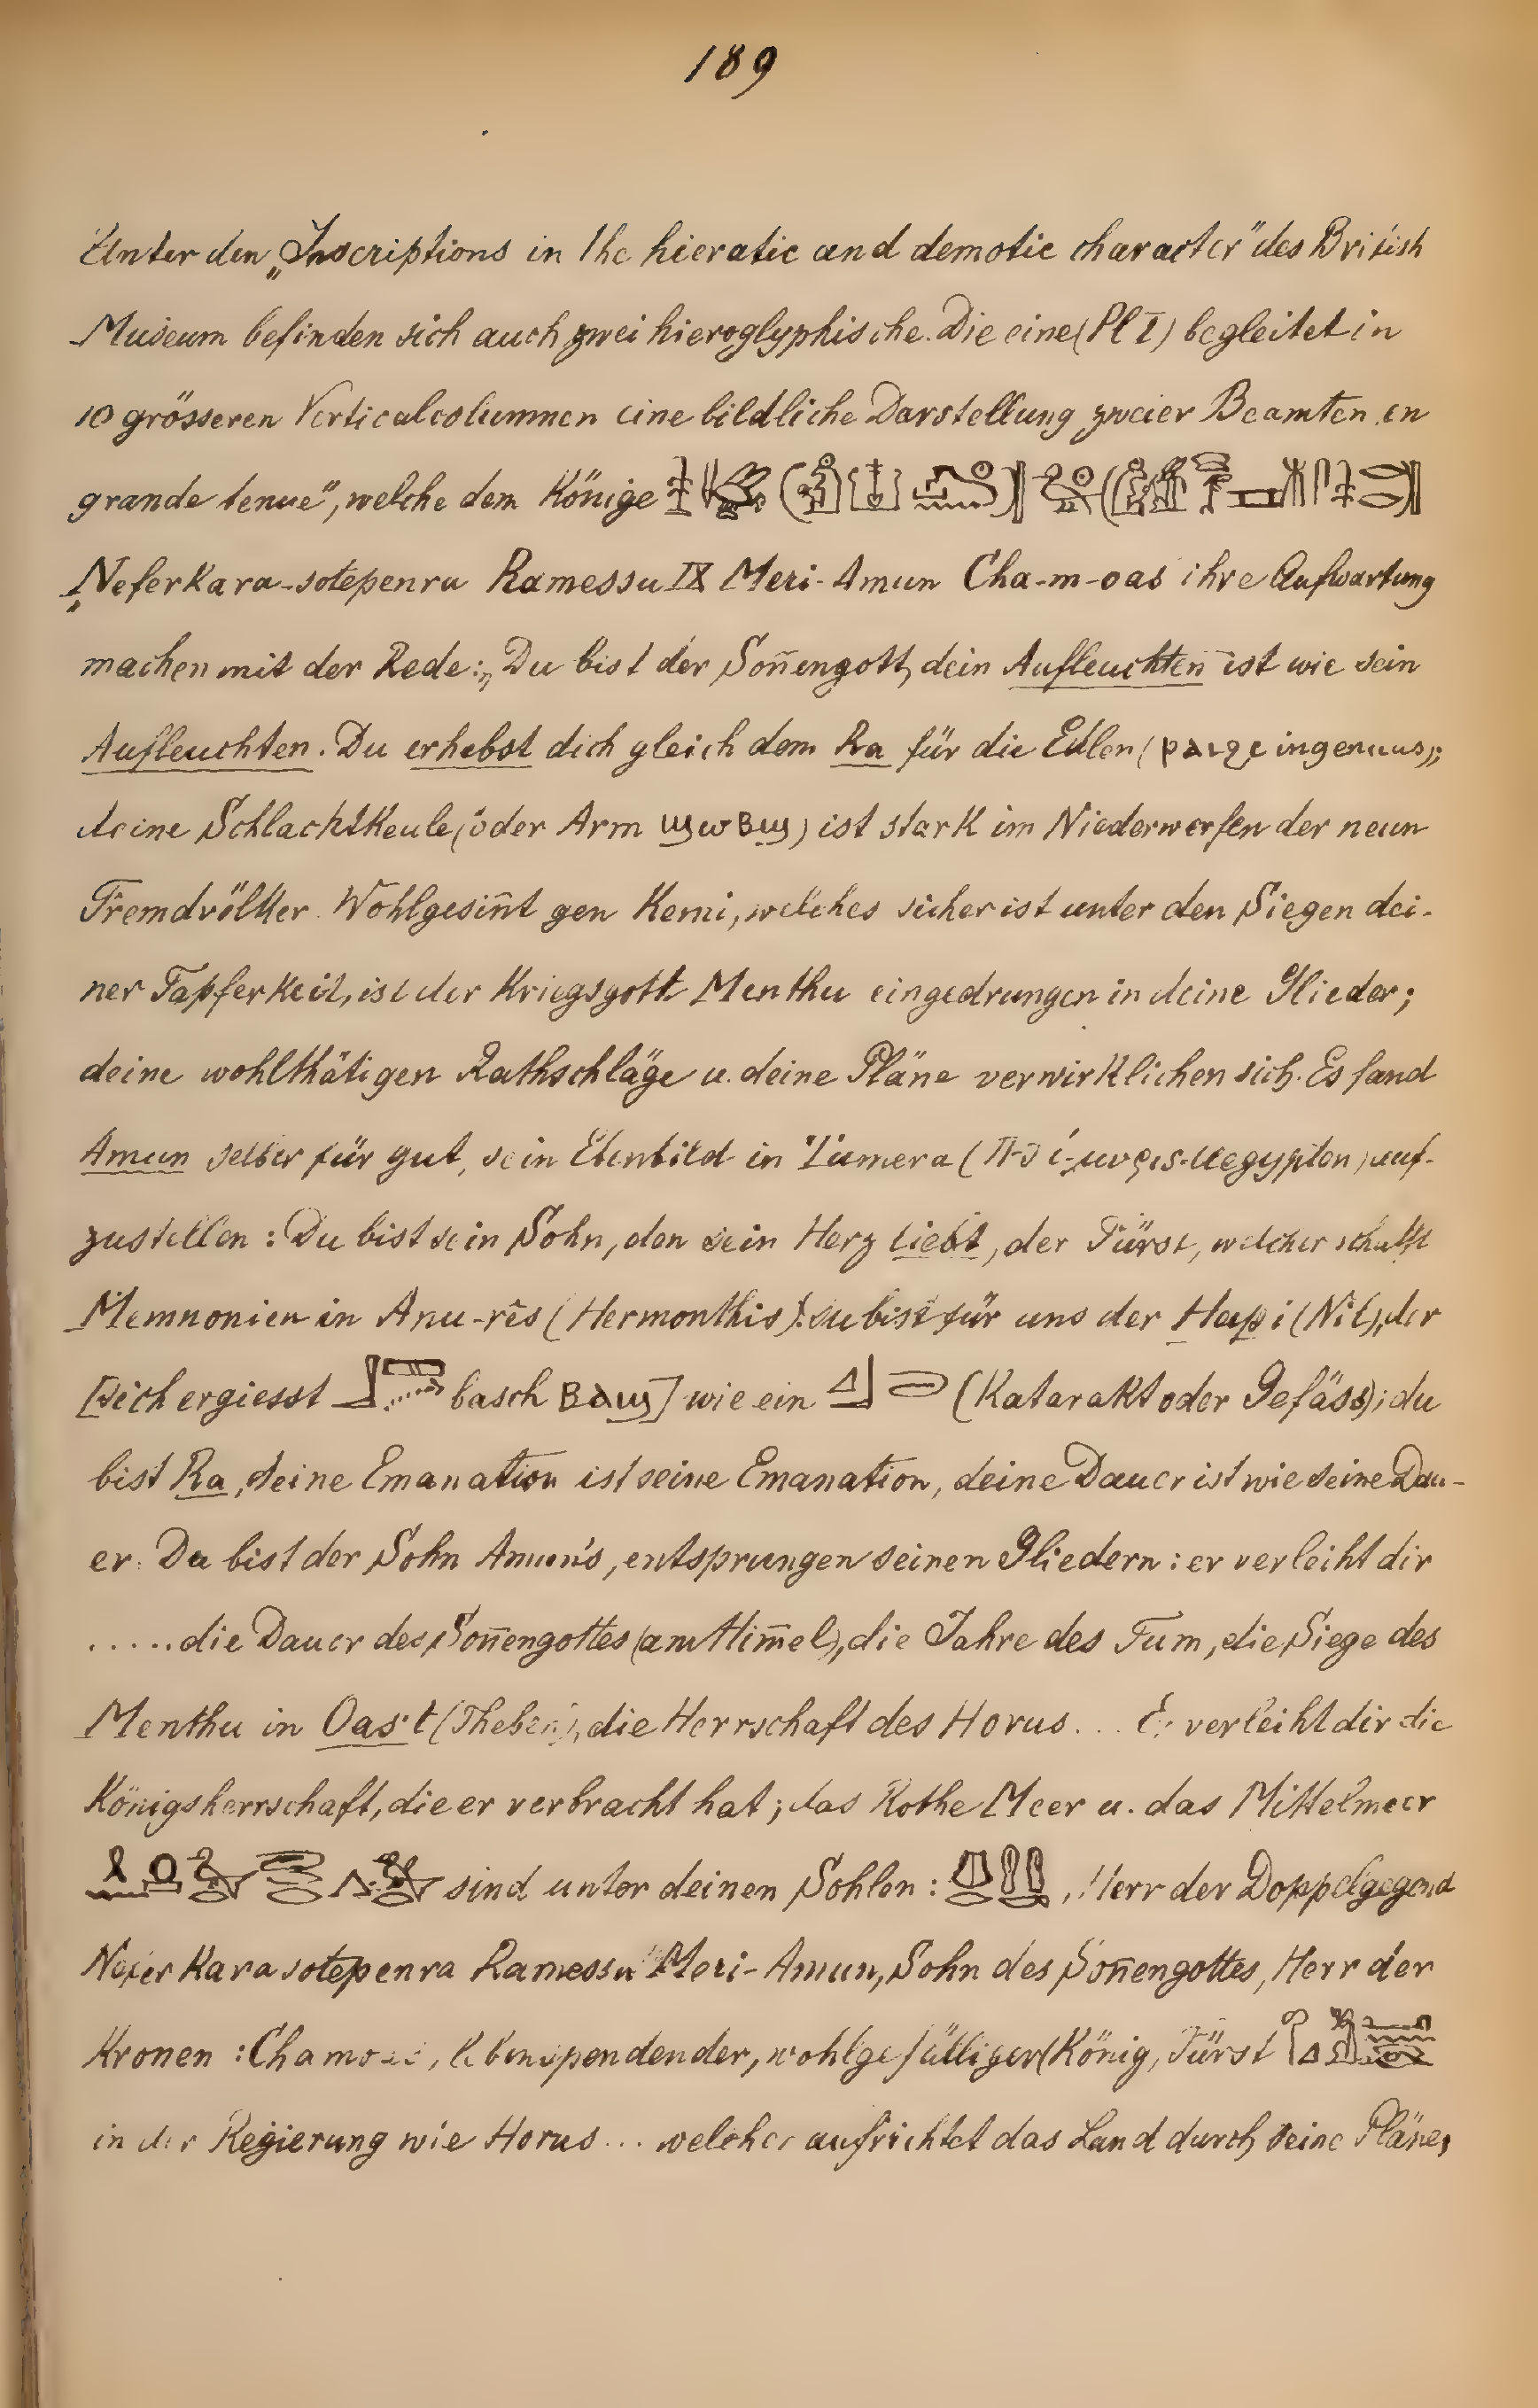 189
Unter den „Inscriptions in the hieratic and demotic character" des British
Museum befinden sich auch zwei hieroglyphische. Die eine (Pl I) begleitet in
10 grösseren Verticalcolumnen eine bildliche Darstellung zweier Beamten „en
grande tenue", welche dem Könige
„Neferkara-sotepenra Ramessu IX Meri-Amun Cha-m-oas ihre Aufwartung
machen mit der Rede: „Du bist der Soñengott, dein Aufleuchten ist wie sein
Aufleuchten. Du erhebst dich gleich dem Ra für die Edlen ( ingenuus);
deine Schlachtkeule (oder Arm ϣⲱⲃϣ) ist stark im Niederwerfen der neun
Fremdvölker. Wohlgesiñt gen Kemi, welches sicher ist unter den Siegen dei-
ner Tapferkeit, ist der Kriegsgott Menthu eingedrungen in deine Glieder;
deine wohlthätigen Rathschläge u. deine Pläne verwirklichen sich. Es fand
Amun selber für gut, sein Ebenbild in Tamera ( Aegypten) auf-
zustellen: Du bist sein Sohn, den sein Herz liebt, der Fürst, welcher schafft
Memnonien in Anu-rēs (Hermonthis): du bist für uns der Hapi (Nil), der
[sich ergiesst basch ⲃⲁϣ] wie ein (Katarakt oder Gefäss); du
bist Ra, deine Emanation ist seine Emanation, deine Dauer ist wie seine Dau-
er. Du bist der Sohn Amun's, entsprungen seinen Gliedern: er verleiht dir
..... die Dauer des Soñengottes (am Him̄el), die Jahre des Tum, die Siege des
Menthu in Oas·t (Theben), die Herrschaft des Horus... Er verleiht dir die
Königsherrschaft, die er verbracht hat; das Rothe Meer u. das Mittelmeer
sind unter deinen Sohlen: , Herr der Doppelgegend
Neferkara sotepenra Ramessu Meri-Amun, Sohn des Soñengottes, Herr der
Kronen: Chamoas, lebenspendender, wohlgefälliger (König, Fürst
in der Regierung wie Horus... welcher aufrichtet das Land durch seine Pläne,